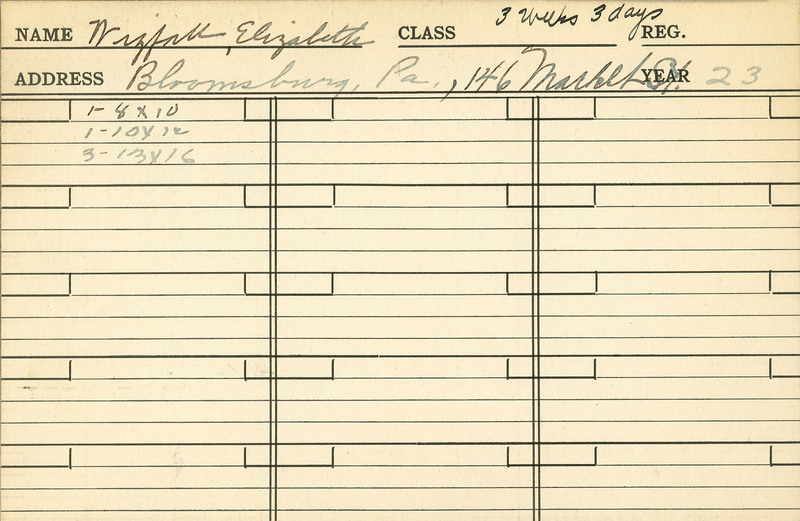 NAME Wigfall, Elizabeth CLASS 3 weeks 3 days REG.
ADDRESS Bloomsburg, Pa., 146 Market St. YEAR 23
1-8x10
1-10x12
3-13x16